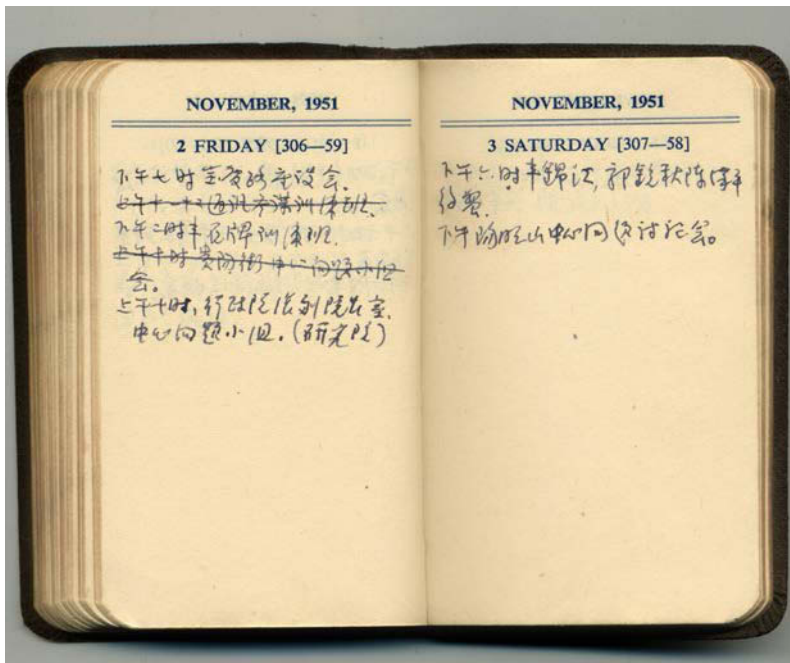 NOVEMBER, 1951
2 FRIDAY [306—59]
下午七时座谈会.
上午十一十二训练班.
下午二时半石牌训练班.
上午十时贵阳街中心问题小组
会。
上午十时,行政院张副院长室,
中心问题小组.(研究院)
NOVEMBER, 1951
3 SATURDAY [307—58]
下午六时半锦江,郭
下午阳明山中心问讨论会。